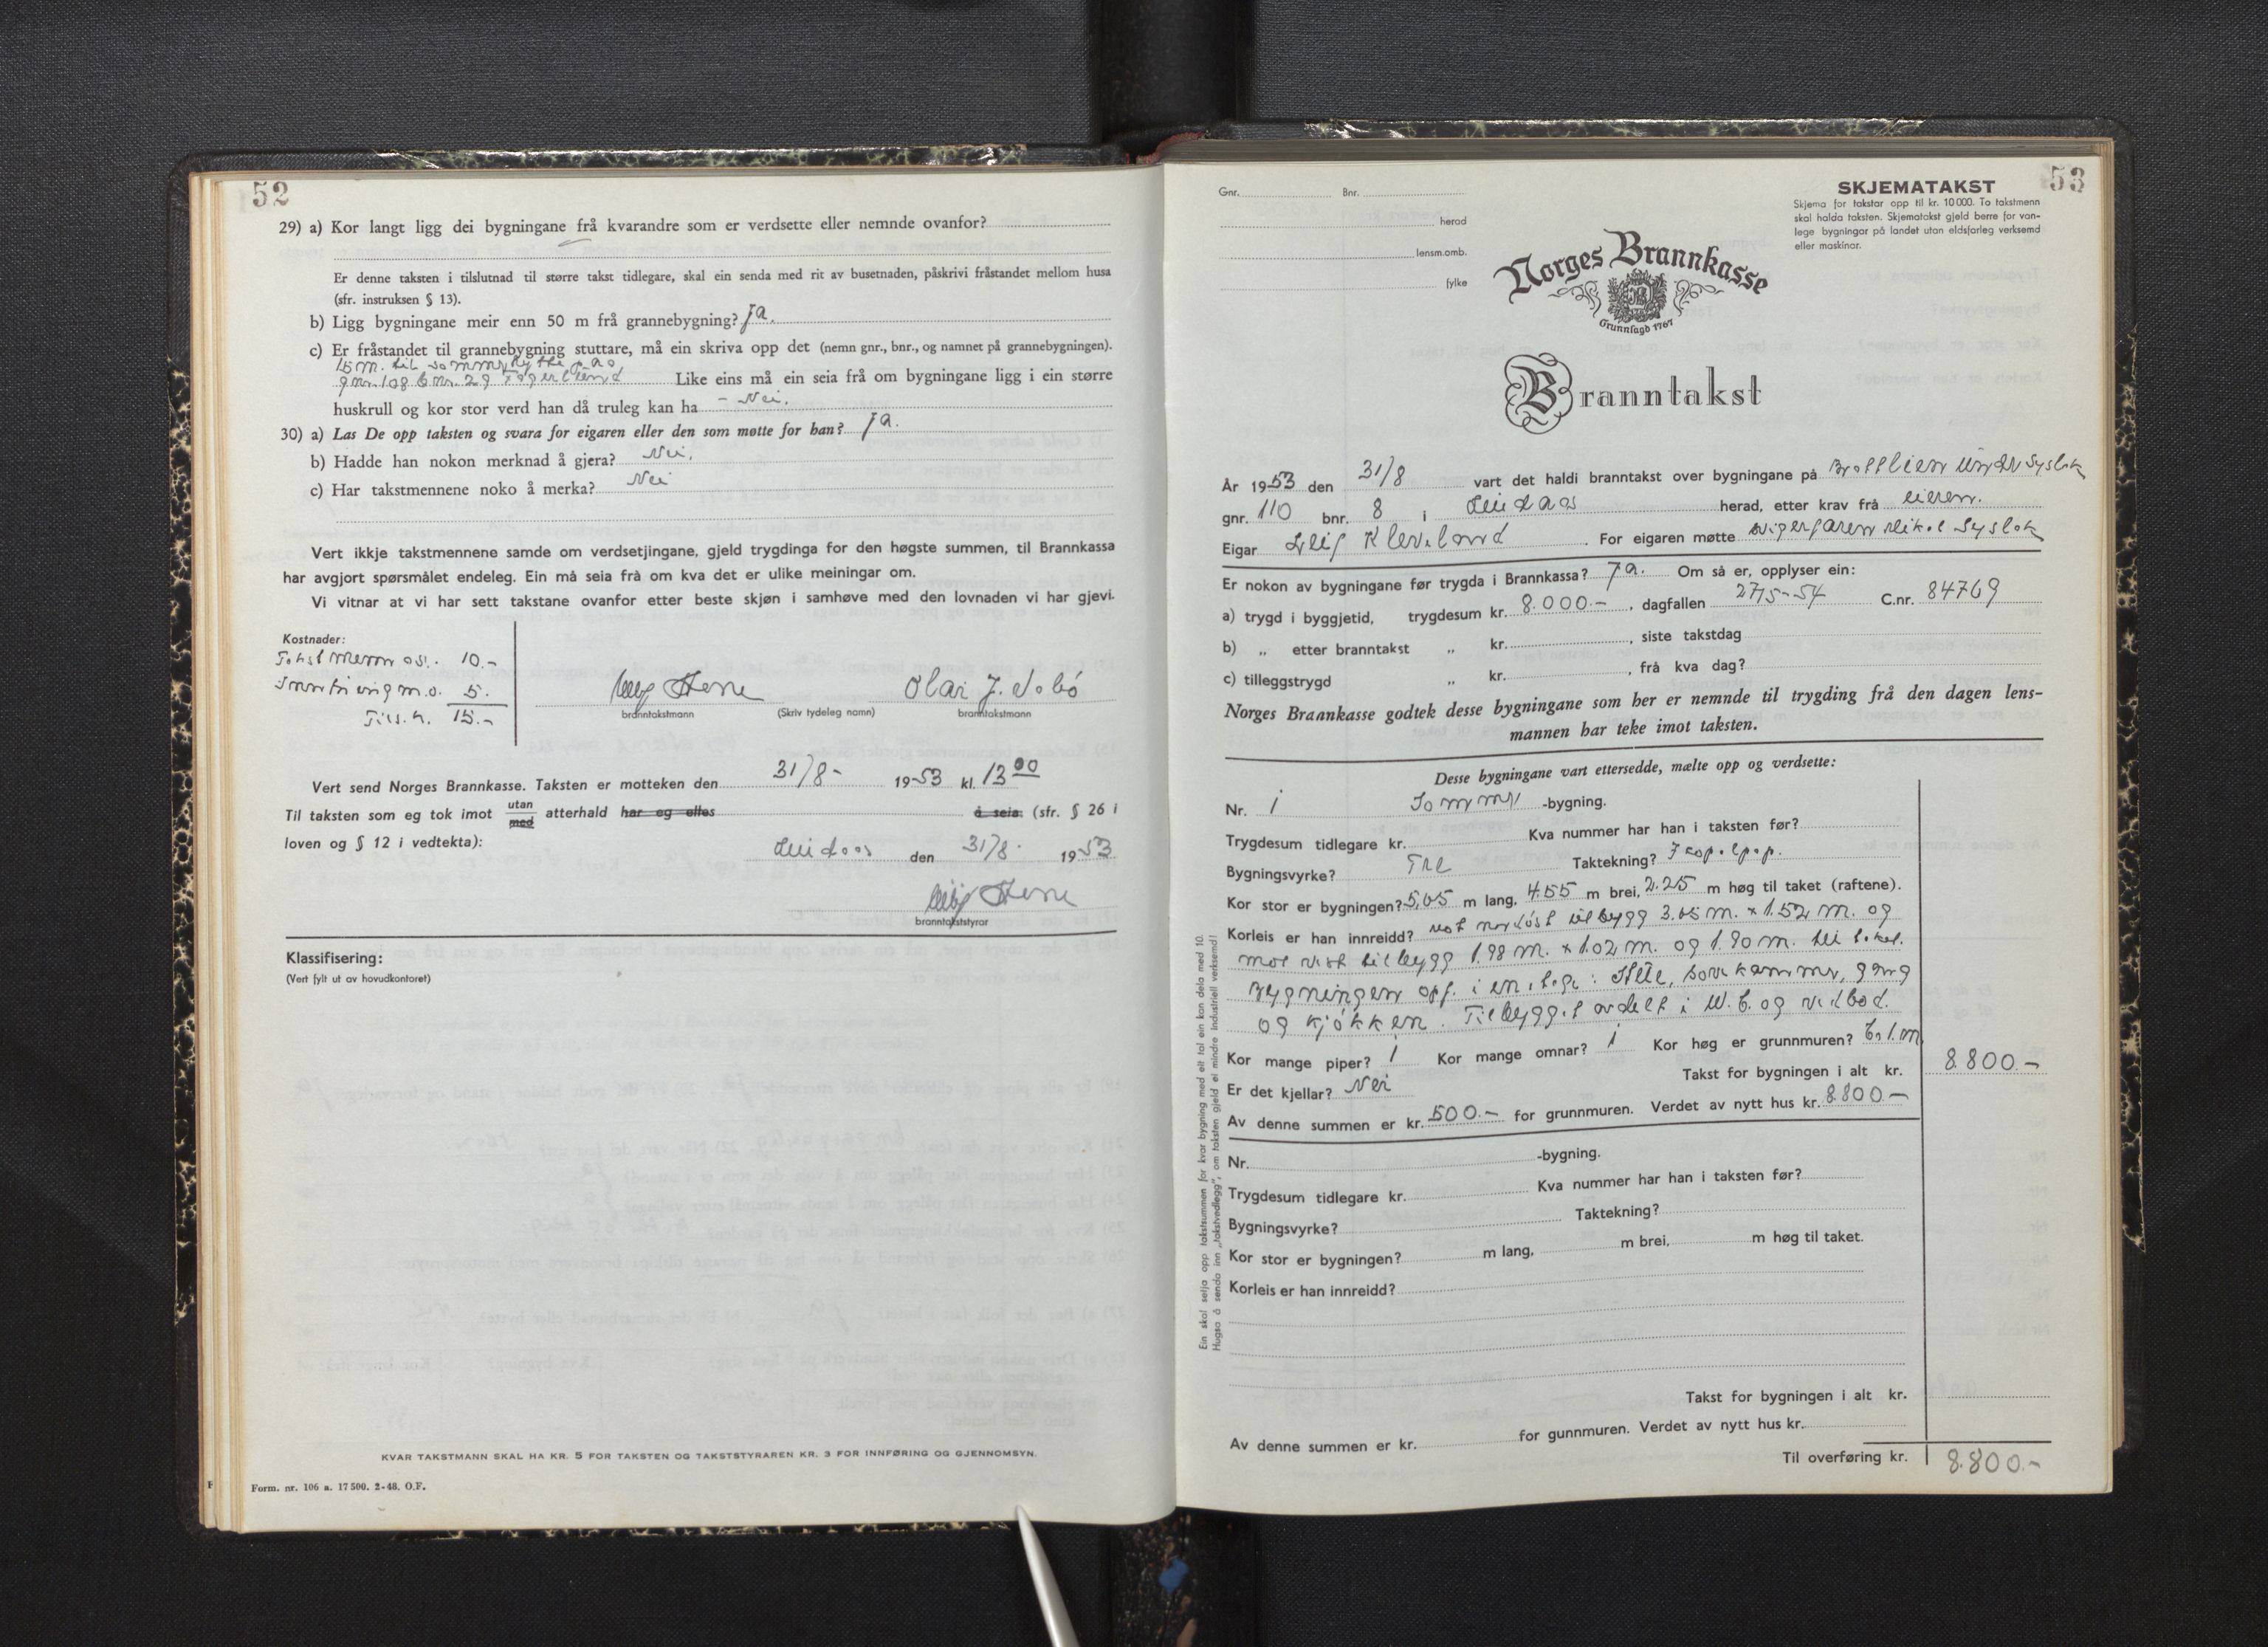 52
29) a) Kor langt ligg dei bygningane frå kvarandre som er verdsette eller nemnde ovanfor?
Er denne taksten i tilslutnad til større takst tidlegare, skal ein senda med rit av busetnaden, påskrivi fråstandet mellom husa
(sfr. instruksen § 13).
b) Ligg bygningane meir enn 50 m frå grannebygning? Ja.
c) Er fråstandet til grannebygning stuttare, må ein skriva opp det (nemn gnr., bnr., og namnet på grannebygningen).
15 m. til sommerhytte på
gnr. 108 b.nr. 29 Fagerlund Like eins må ein seia frå om bygningane ligg i ein større
huskrull og kor stor verd han då truleg kan ha - Nei.
30) a) Las De opp taksten og svara for eigaren eller den som møtte for han? Ja.
b) Hadde han nokon merknad å gjera? Nei.
c) Har takstmennene noko å merka? Nei
Vert ikkje takstmennene samde om verdsetjingane, gjeld trygdinga for den høgste summen, til Brannkassa
har avgjort spørsmålet endeleg. Ein må seia frå om kva det er ulike meiningar om.
Vi vitnar at vi har sett takstane ovanfor etter beste skjøn i samhøve med den lovnaden vi har gjevi.
Kostnader:
Takstmennene 10.-
Innføring m.v. 5.
Tils. kr. 15.-
Stene Olai J.
branntakstmann (Skriv tydeleg namn) branntakstmann
Vert send Norges Brannkasse. Taksten er motteken den 31/8- 1953 kl. 13 00
Til taksten som eg tok imot utan med atterhald har eg elles å seia: (sfr. § 26 i
loven og § 12 i vedtekta):
Lindaas den 31/8. 1953
Stene
branntakststyrar
Klassifisering:
(Vert fylt ut av hovudkontoret)
KVAR TAKSTMANN SKAL HA KR. 5 FOR TAKSTEN OG TAKSTSTYRAREN KR. 3 FOR INNFØRING OG GJENNOMSYN.
Form. nr. 106 a. 17 500. 2-48. O.F.
53
Gnr. Bnr.
herad
lensm.omb.
fylke
SKJEMATAKST
Skjema for takstar opp til kr. 10 000. To takstmenn
skal halda taksten. Skjematakst gjeld berre for van-
lege bygningar på landet utan eldsfarleg verksemd
eller maskinar.
Norges Brannkasse
Grunnlagd 1767
Branntakst
År 1953 den 31/8 vart det haldi branntakst over bygningane på Brattlien under Syslak
gnr. 110 bnr. 8 i Lindaas herad, etter krav frå eieren.
Eigar Leif Kleveland. For eigaren møtte svigerfaren Mikal Syslak
Er nokon av bygningane før trygda i Brannkassa? Ja. Om så er, opplyser ein:
a) trygd i byggjetid, trygdesum kr. 8.000.-, dagfallen 27/5-54 C.nr. 84769
b) „ etter branntakst „ kr., siste takstdag
c) tilleggstrygd „ kr., frå kva dag?
Norges Brannkasse godtek desse bygningane som her er nemnde til trygding frå den dagen lens-
mannen har teke imot taksten.
Desse bygningane vart ettersedde, mælte opp og verdsette:
Nr. 1 Sommer -bygning.
Trygdesum tidlegare kr. Kva nummer har han i taksten før?
Bygningsvyrke? Tre Taktekning?
Kor stor er bygningen? 5,65 m lang, 4.55 m brei, 2.25 m høg til taket (raftene).
Korleis er han innreidd? mot nordøst tilbygg 3.65 m. x 1.52 m. og
mot vest tilbygg 1.98 m. x 1.02 m. og 1.90 m. til taket.
Bygningen opf. i en etg: Stue, sovekammer, gang
og kjøkken. Tilbygget avdelt i W.C. og vedbod.
Kor mange piper? 1 Kor mange omnar? 1 Kor høg er grunnmuren? Ca 1. m
Er det kjellar? Nei Takst for bygningen i alt kr. 8.800.-
Av denne summen er kr. 500.- for grunnmuren. Verdet av nytt hus kr. 8800.-
Nr. -bygning.
Trygdesum tidlegare kr. Kva nummer har han i taksten før?
Bygningsvyrke? Taktekning?
Kor stor er bygningen? m lang, m brei, m høg til taket.
Korleis er han innreidd?
Takst for bygningen i alt kr.
Av denne summen er kr. for gunnmuren. Verdet av nytt hus kr.
Til overføring kr. 8.800.-
Ein skal seija opp takstsummen for kvar bygning med eit tal ein kan dela med 10.
Hugso å senda inn „takstvedlegg”, om taksten gjeld ei mindre industriell verksemd!